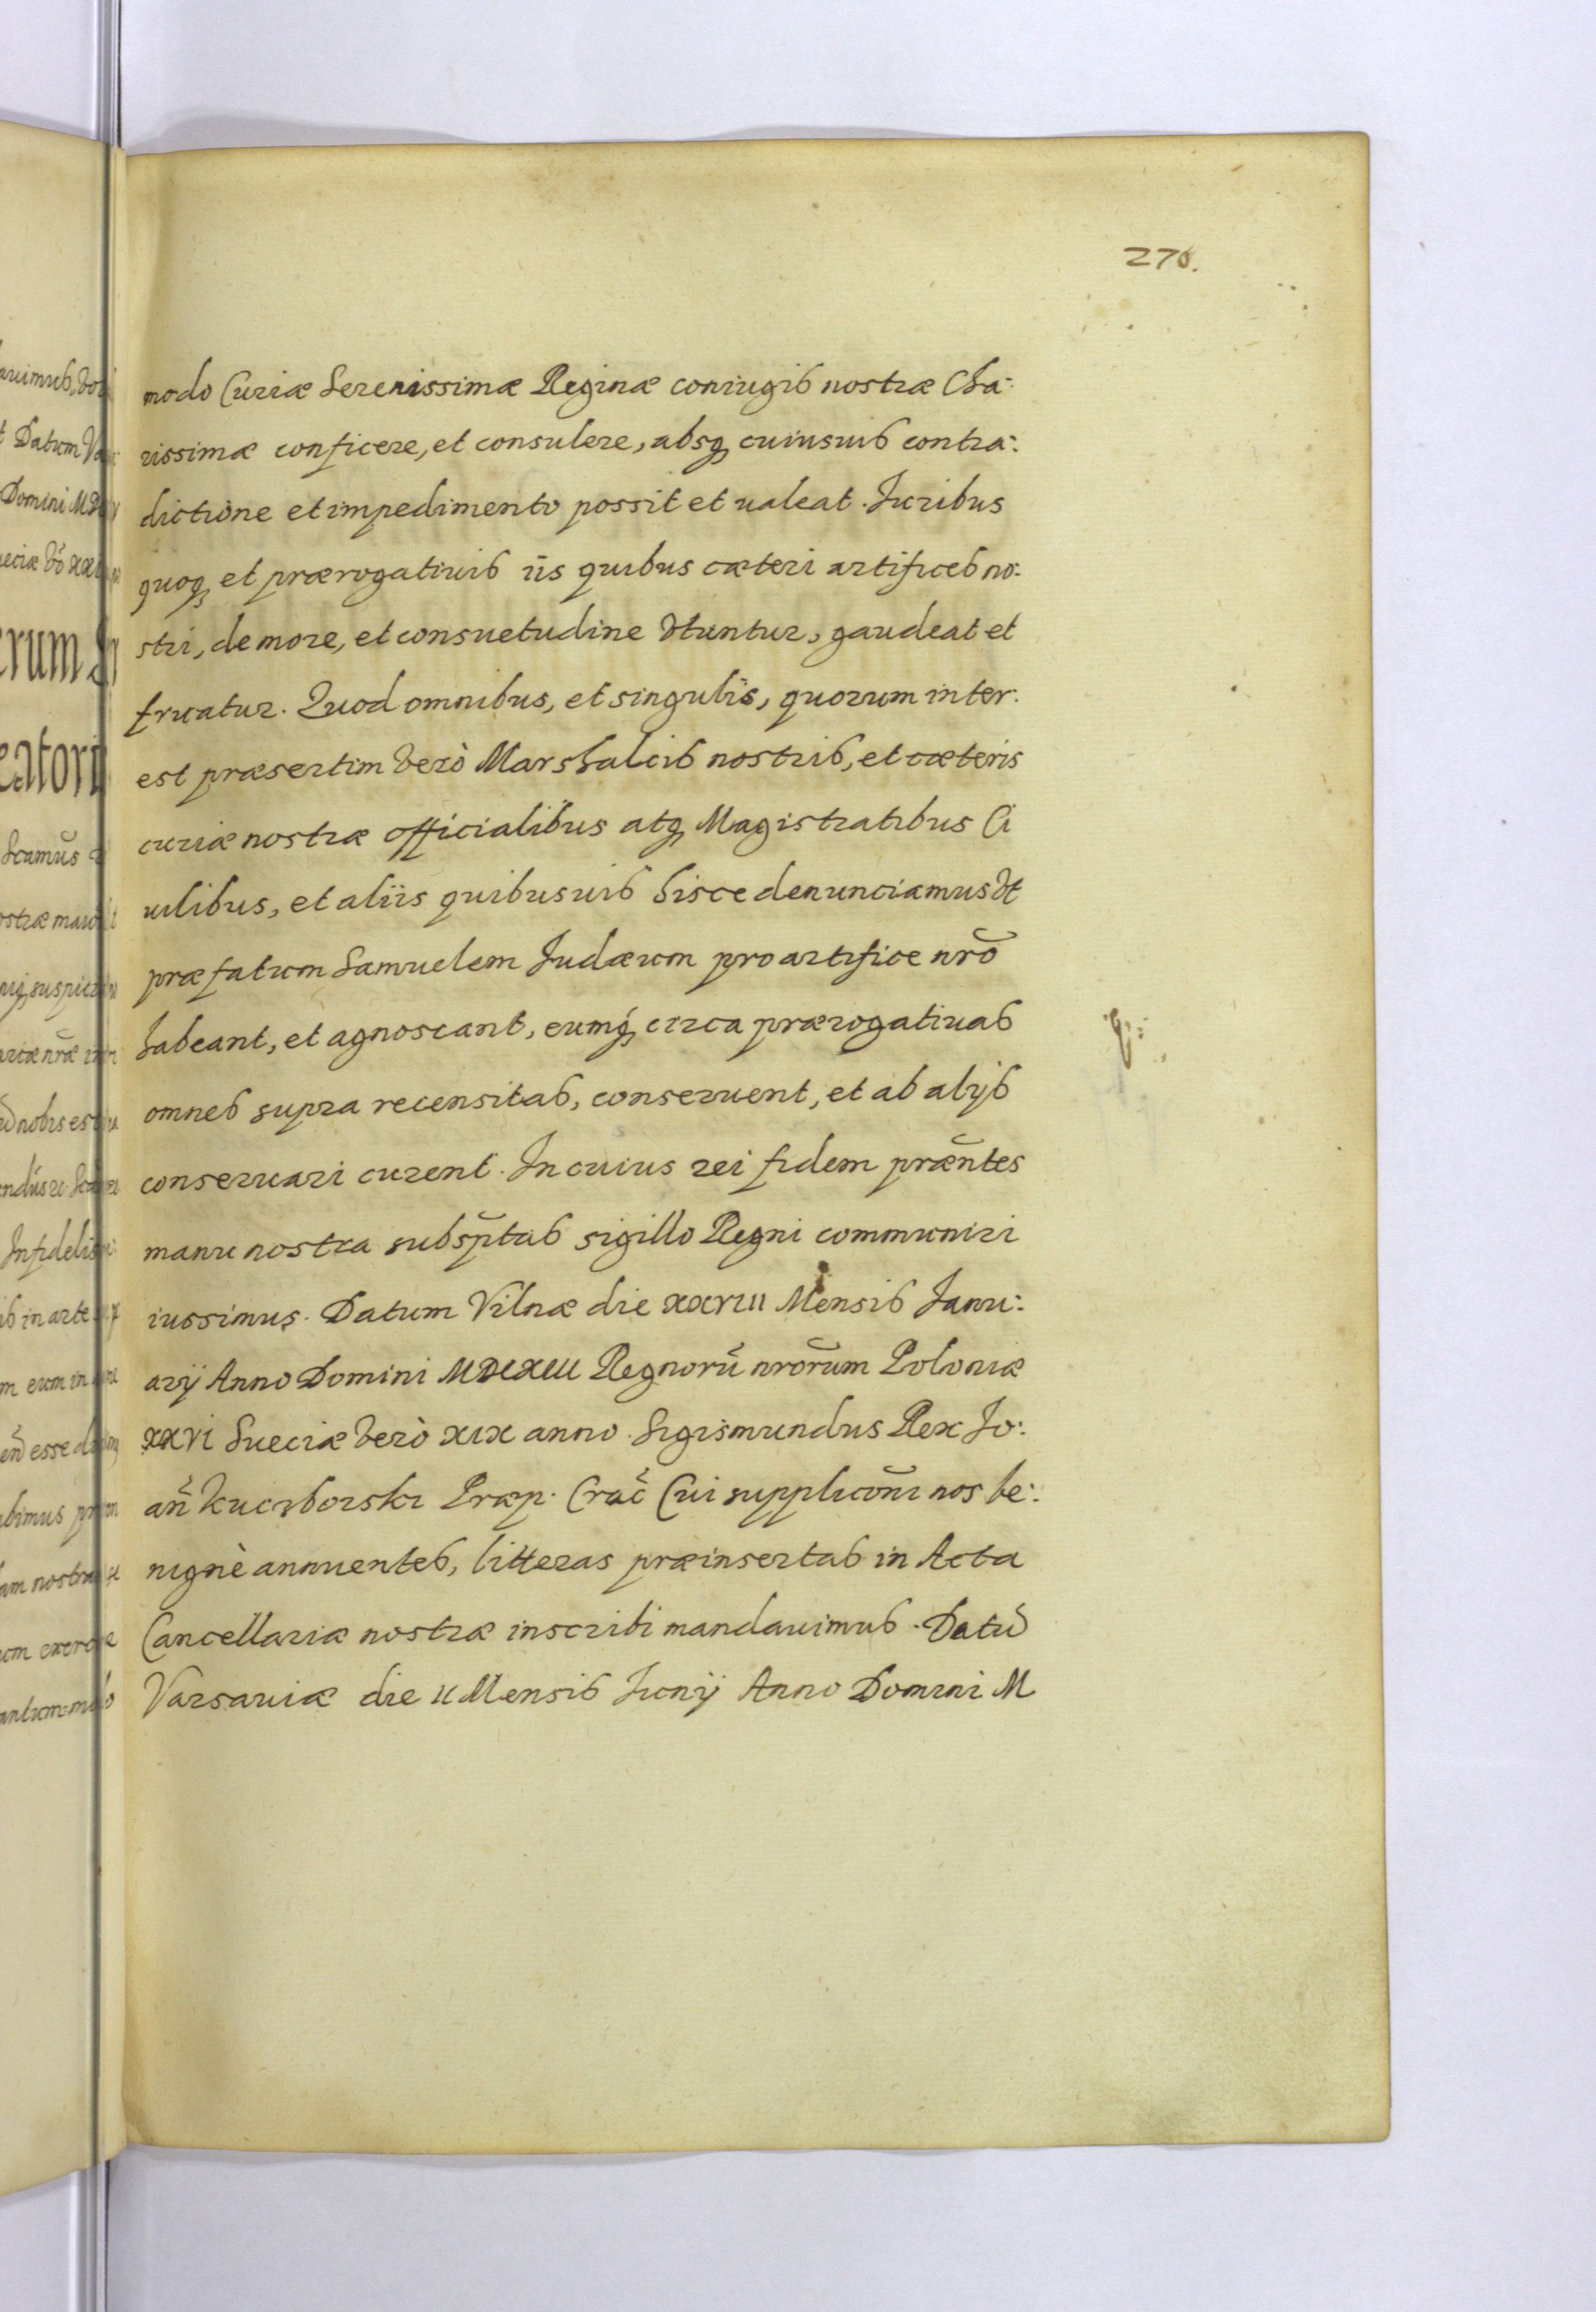 270.
modo Curiæ Serenissimæ Reginæ coniugis nostræ Cha:
rissimæ conficere, et consulere, absq cuiusuis contra:
dictione et impedimento possit et ualeat. Iuribus
quoq et prærogatiuis iis quibus cæteri artifices no:
stri, de more, et consuetudine vtuntur, gaudeat et
fruatur. Quod omnibus, et singulis, quorum inter:
est præsertim verò Marshalcis nostris, et cæteris
curiæ nostræ officialibus atq Magistratibus Ci
uilibus, et aliis quibusuis hisce denunciamus vt
præfatum Samuelem Iudæum pro artifice nrõ
habeant, et agnoscant, eumq́ circa prærogatiuas
omnes supra recensitas, conseruent, et ab alijs
conseruari curent. In cuius rei fidem præñtes
manu nostra subsp̃tas sigillo Regni communiri
iussimus. Datum Vilnæ die XXVIII Mensis Ianu:
arij Anno Domini MDCXIII Regnorũ nrõrum Poloniæ
XXVI Sueciæ verò XIX anno. Sigismundus Rex Io:
añ Kuczborski Præp. Crac̃ Cui supplicõni nos be:
nignè annuentes, litteras præinsertas in Acta
Cancellariæ nostræ inscribi mandauimus. Datũ
Varsauiæ die II Mensis Iunij Anno Domini M